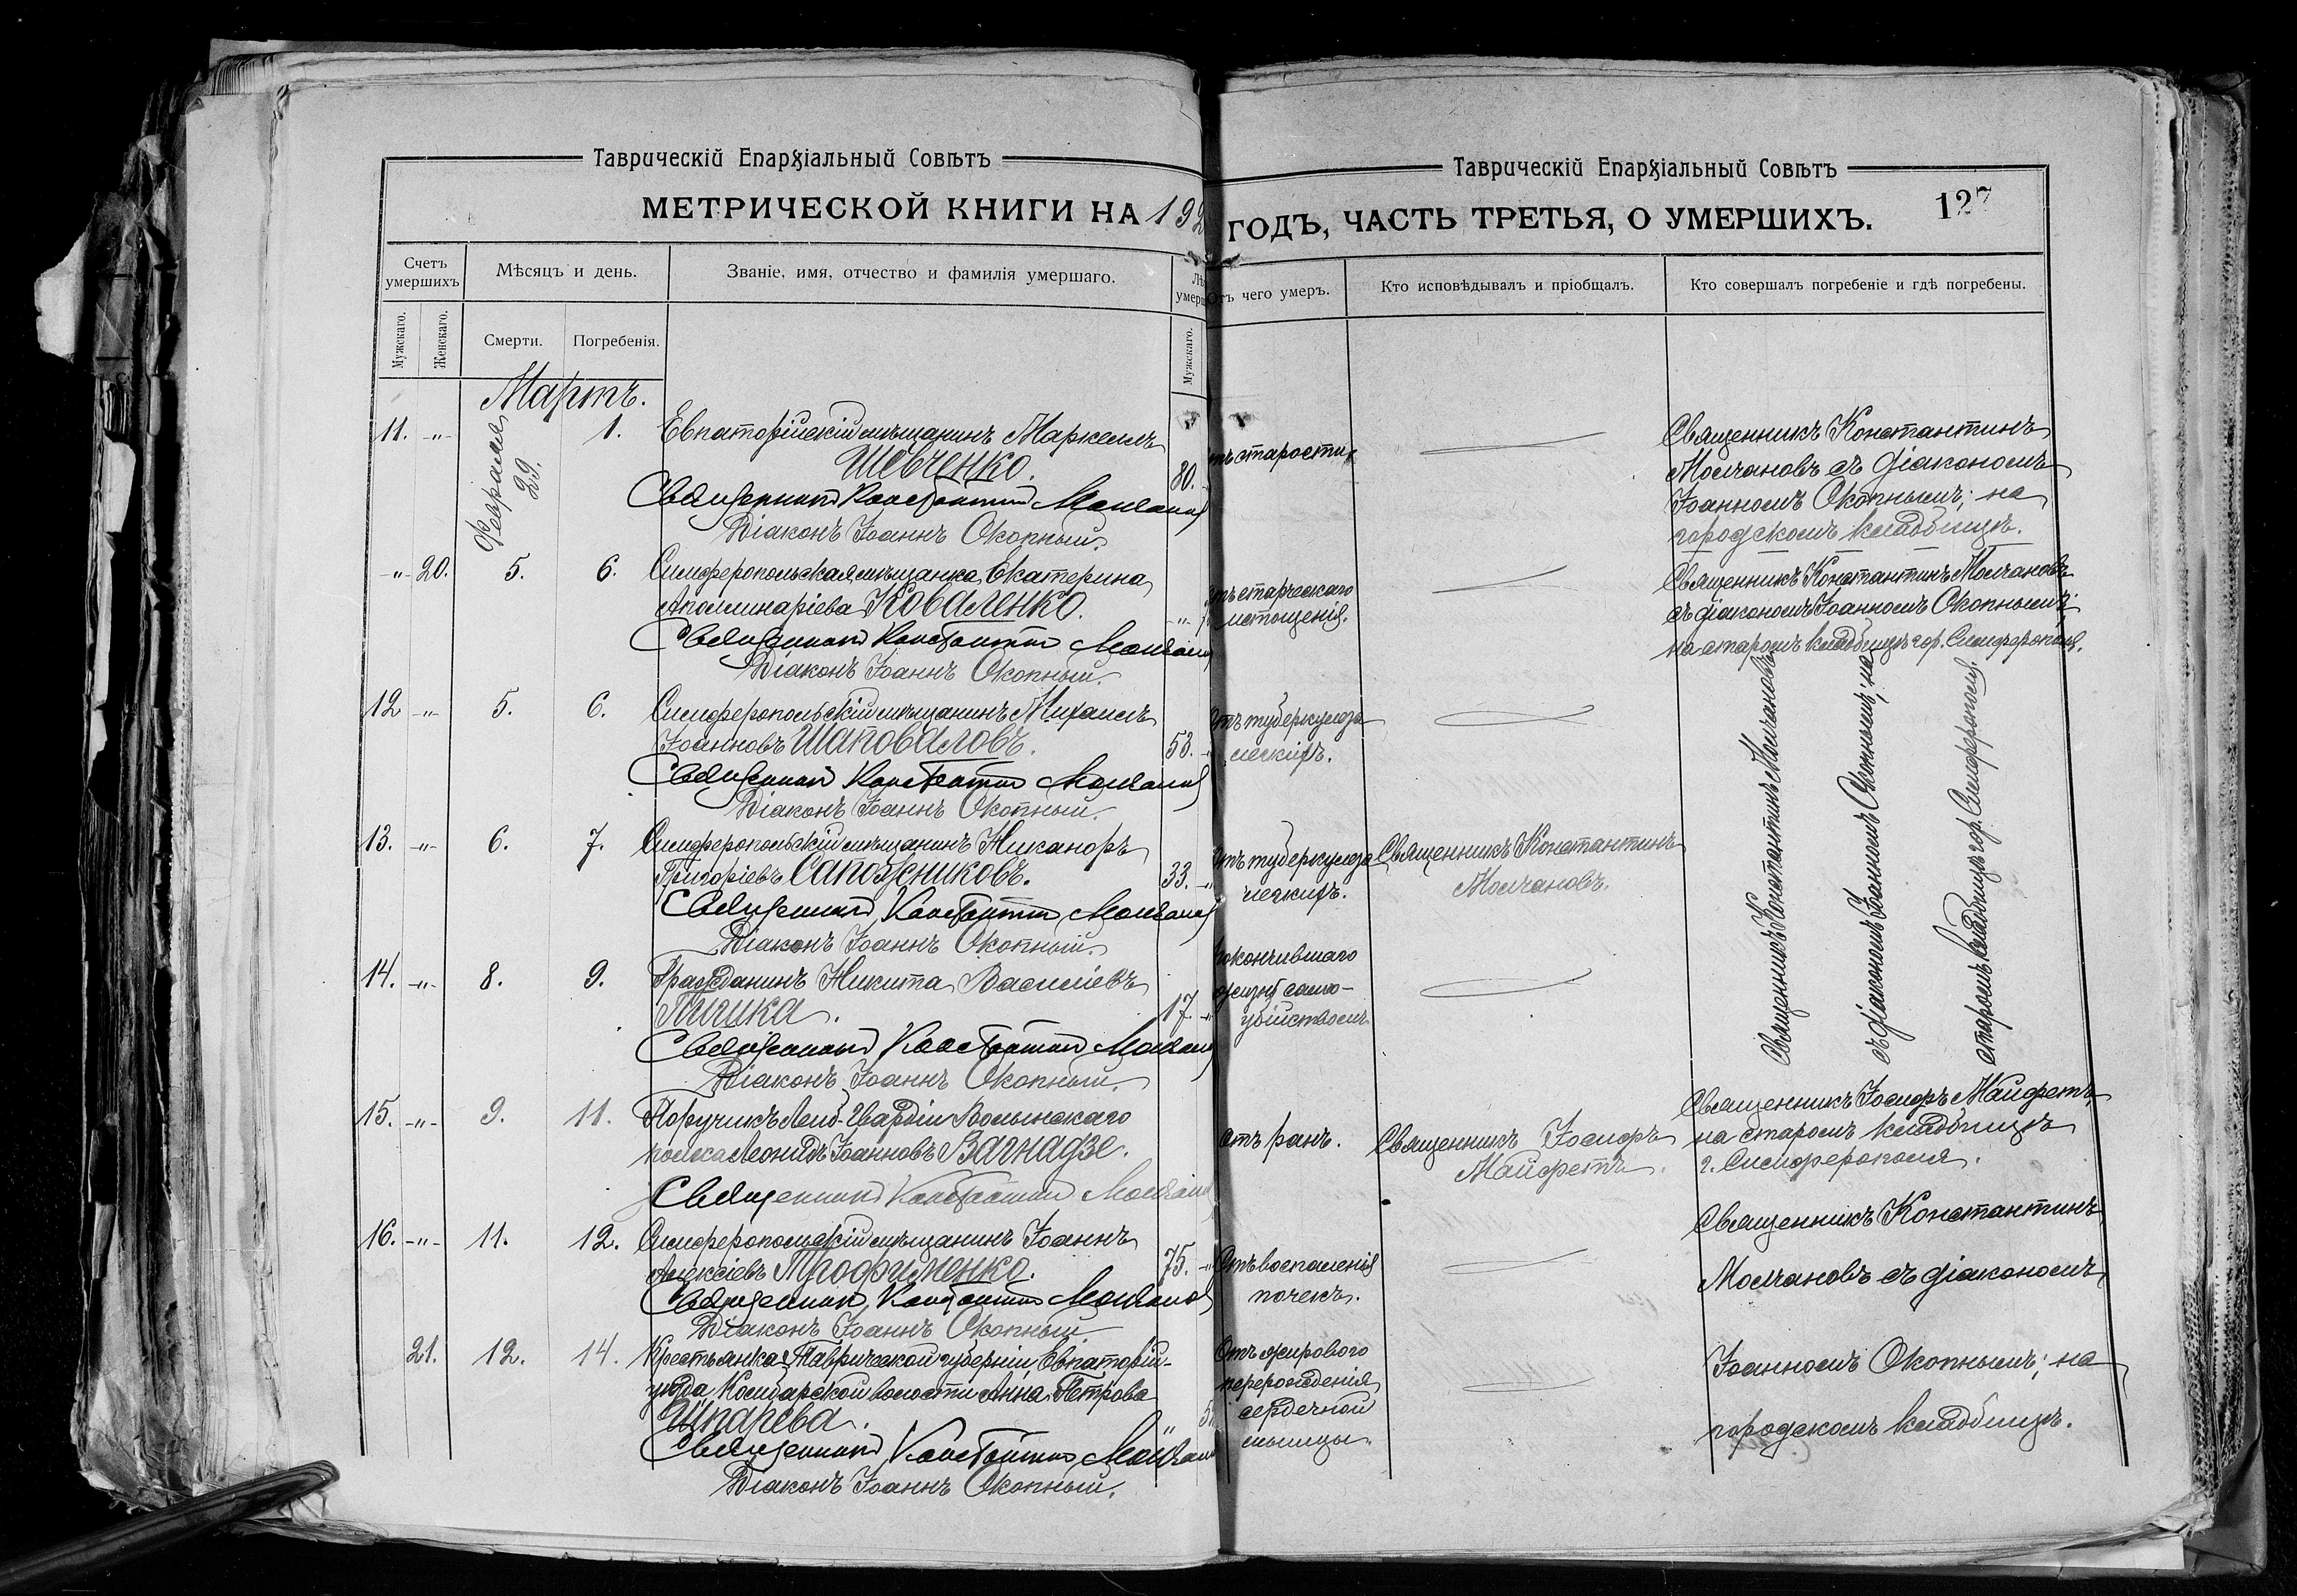 Таврическій Епархіальный Совѣтъ
МЕТРИЧЕСКОЙ КНИГИ НА 192
Счетъ умершихъ
Мѣсяцъ и день.
Званіе, имя, отчество и фамилія умершаго.
Мужскаго.
Женскаго.
Смерти.
Погребенія.
Мужскаго.
Мартъ.
11. -"- Февраля 29. 1. Евпаторійскій мѣщанинъ Маркеллъ
Шевченко. 80.
Священникъ Константинъ Молчановъ
Діаконъ Іоаннъ Окопный.
-"- 20. 5. 6. Симферопольская мѣщанка Екатерина
Аполлинаріева Коваленко. -"-
Священникъ Константинъ Молчановъ
Діаконъ Іоаннъ Окопный.
12 -"- 5. 6. Симферопольскій мѣщанинъ Михаилъ
Іоанновъ Шаповаловъ. 53.
Священникъ Константинъ Молчановъ
Діаконъ Іоаннъ Окопный.
13. -"- 6. 7. Симферопольскій мѣщанинъ Никаноръ
Григоріевъ Сапожниковъ. 33.
Священникъ Константинъ Молчановъ
Діаконъ Іоаннъ Окопный.
14. -"- 8. 9. Гражданинъ Никита Василіевъ
17.
Священникъ Константинъ Молчановъ
Діаконъ Іоаннъ Окопный.
15. -"- 9. 11. Поручикъ Лейб-Гвардіи Волынскаго
полка Леонидъ Іоанновъ Вагнадзе.
Священникъ Константинъ Молчановъ
16. -"- 11. 12. Симферопольскій мѣщанинъ Іоаннъ
Алексіевъ Трофименко. 75.
Священникъ Константинъ Молчановъ
Діаконъ Іоаннъ Окопный
21. 12. 14. Крестьянка Таврической губерніи Евпаторій-
уѣзда волости Анна Петрова
Шпарева.
Священникъ Константинъ Молчановъ
Діаконъ Іоаннъ Окопный.
Таврическій Епархіальный Совѣтъ
ГОДЪ, ЧАСТЬ ТРЕТЬЯ, О УМЕРШИХЪ.
127
Отъ чего умеръ.
Кто исповѣдывалъ и пріобщалъ.
Кто совершалъ погребеніе и гдѣ погребены.
отъ старости
Священникъ Константинъ
Молчановъ съ діакономъ
Іоанномъ Окопнымъ; на
городскомъ кладбищѣ.
отъ старческаго
истощенія.
Священникъ Константинъ Молчановъ
съ діакономъ Іоанномъ Окопнымъ;
на старомъ кладбищѣ гор. Симферополя.
отъ туберкулеза
легкихъ.
Священникъ Константинъ Молчановъ
съ діакономъ Іоанномъ Окопнымъ; на
старомъ кладбищѣ гор. Симферополя.
отъ туберкулеза
легкихъ.
Священникъ Константинъ
Молчановъ.
покончившаго
жизнь само-
убійствомъ
отъ ранъ.
Священникъ Іосифъ
Майфетъ.
Священникъ Іосифъ Майфетъ,
на старомъ кладбищѣ
г. Симферополя.
Отъ воспаленія
почекъ.
Священникъ Константинъ
Молчановъ съ діакономъ
Іоанномъ Окопнымъ; на
городскомъ кладбищѣ.
Отъ жирового
перерожденія
сердечной
мышцы.